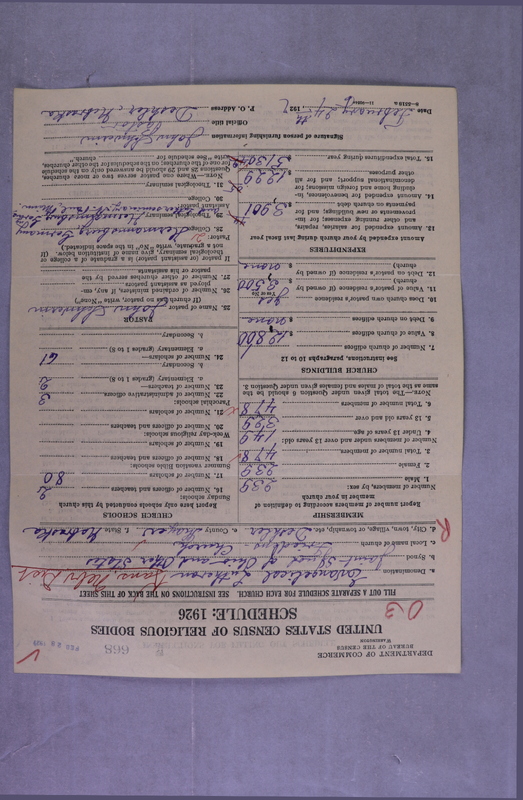 DEPARTMENT OF COMMERCE
BUREAU OF THE CENSUS
WASHINGTON
668
UNITED STATES CENSUS OF RELIGIOUS BODIES
SCHEDULE: 1926
FILL OUT A SEPARATE SCHEDULE FOR EACH CHURCH. SEE INSTRUCTIONS ON THE BACK OF THIS SHEET
a. Denomination Evangelical Lutheran
b. Synod Joint Synod of Ohio and Other States
c. Local name of church Church
d. City, town, village, or township, etc. Deshler e. County Thayer f. State Nebraska
MEMBERSHIP
Report number of members according to definition of member in your church
Number of members, by sex:
1. Male 239
2. Female 239
3. Total number of members 478
Number of members under and over 13 years old:
4. Under 13 years of age 149
5. 13 years old and over 329
6. Total number of members 478
NOTE.—The total given under Question 6 should be the same as the total of males and females given under Question 3.
CHURCH BUILDINGS
See instructions, paragraphs 10 to 12
7. Number of church edifices
8. Value of church edifices $12,800
9. Debt on church edifices $ none
10. Does church own pastor's residence yes
(Yes or No)
11. Value of pastor's residence (if owned by church) $3,500
12. Debt on pastor's residence (if owned by church) $ none
EXPENDITURES
Amount expended by your church during last fiscal year
13. Amount expended for salaries, repairs, and other running expenses; for improvements or new buildings; and for payments on church debt $3,901
14. Amount expended for benevolences, including home and foreign missions; for denominational support; and for all other purposes $1,229
15. Total expenditures during year
CHURCH SCHOOLS
Report here only schools conducted by this church
Sunday schools:
16. Number of officers and teachers 2
17. Number of scholars 80
Summer vacation Bible schools:
18. Number of officers and teachers
19. Number of scholars
Week-day religious schools:
20. Number of officers and teachers
21. Number of scholars
Parochial schools:
22. Number of administrative officers 3
23. Number of teachers—
a. Elementary (grades 1 to 8) 2
b. Secondary
24. Number of scholars—
a. Elementary (grades 1 to 8) 61
b. Secondary
PASTOR
25. Name of pastor John
(If church has no pastor, write "None")
26. Number of ordained ministers, if any, employed as assistant pastors
27. Number of other churches served by the pastor or his assistants
If pastor (or assistant) is a graduate of a college or theological seminary, give name of institution below. (If not a graduate, write "No" in the space indicated.)
Pastor:
28. College Hermannsburg, Germany
29. Theological seminary
Assistant pastor:
30. College
31. Theological seminary
NOTE.—Where one pastor serves two or more churches, Questions 28 and 29 should be answered only in the schedule for one of the churches; on the schedules for the other churches, write "See schedule for church."
Signature of person furnishing information John
Official title Pastor
P. O. Address Deshler, Nebraska
Date February 24th, 1927